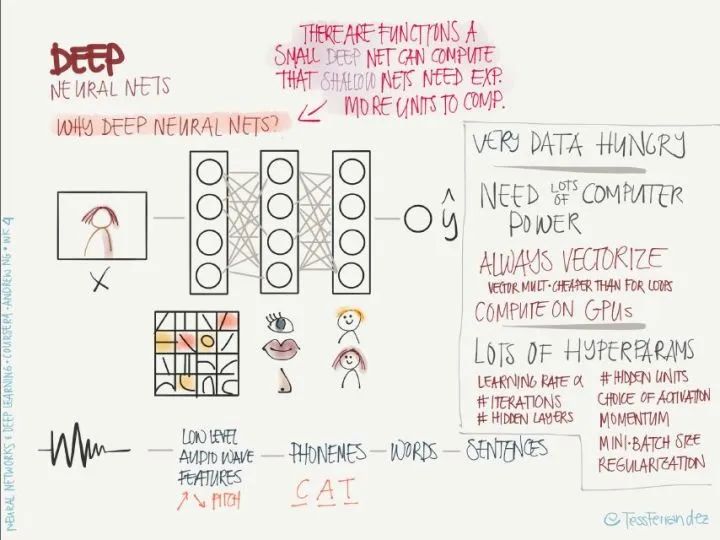 DEEP
NEURAL NETS
THERE ARE FUNCTIONS A
SMALL DEEP NET CAN COMPUTE
THAT SHALLOW NETS NEED EXP.
MORE UNITS TO COMP.
WHY DEEP NEURAL NETS?
X
ŷ
VERY DATA HUNGRY
NEED LOTS OF COMPUTER
POWER
ALWAYS VECTORIZE
VECTOR MULT. CHEAPER THAN FOR LOOPS
COMPUTE ON GPUs
LOTS OF HYPERPARAMS
LEARNING RATE α
# ITERATIONS
# HIDDEN LAYERS
# HIDDEN UNITS
CHOICE OF ACTIVATION
MOMENTUM
MINI-BATCH SIZE
REGULARIZATION
LOW LEVEL
AUDIO WAVE
FEATURES
PITCH
PHONEMES
C A T
WORDS
SENTENCES
NEURAL NETWORKS & DEEP LEARNING • COURSERA • ANDREW NG • WK 4
@TessFerrandez